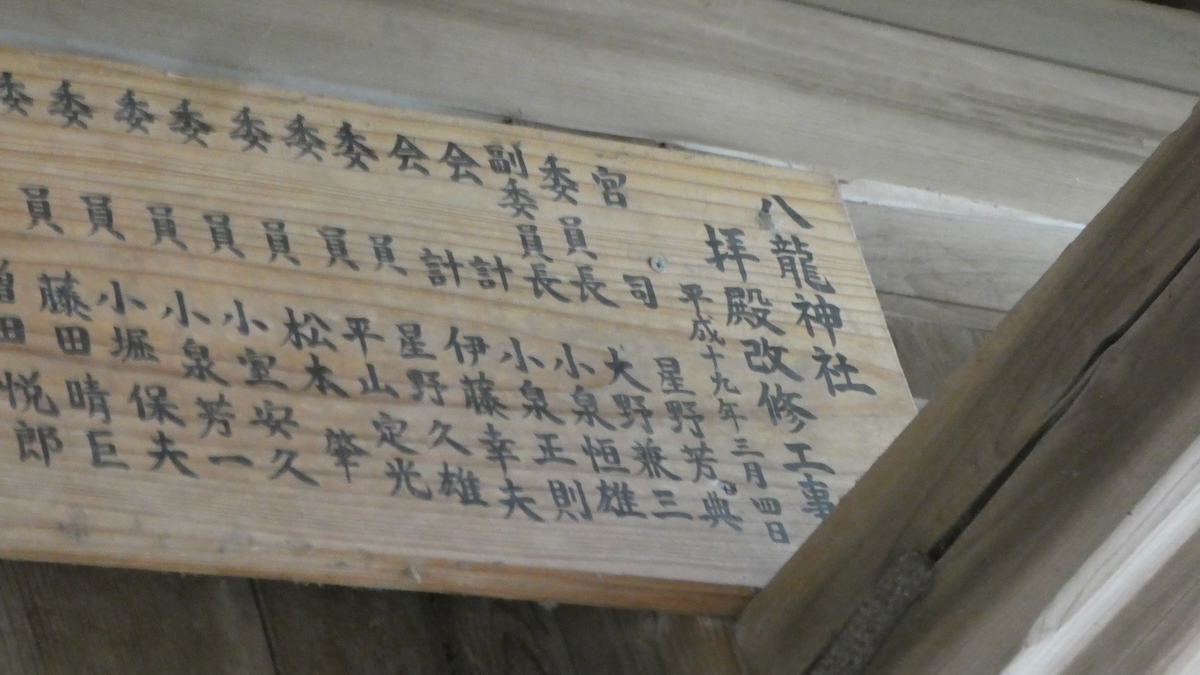 八龍神社
拝殿改修工事
平成十九年三月四日
宮司 星野芳典
委員長 大野兼三
副委員長 小泉恒雄
会計 小泉正則
会計 伊藤幸夫
委員 星野久雄
委員 平山定光
委員 松本肇
委員 小室安久
委員 小泉芳一
委員 小堀保夫
委員 藤田晴巨
増田悦郎